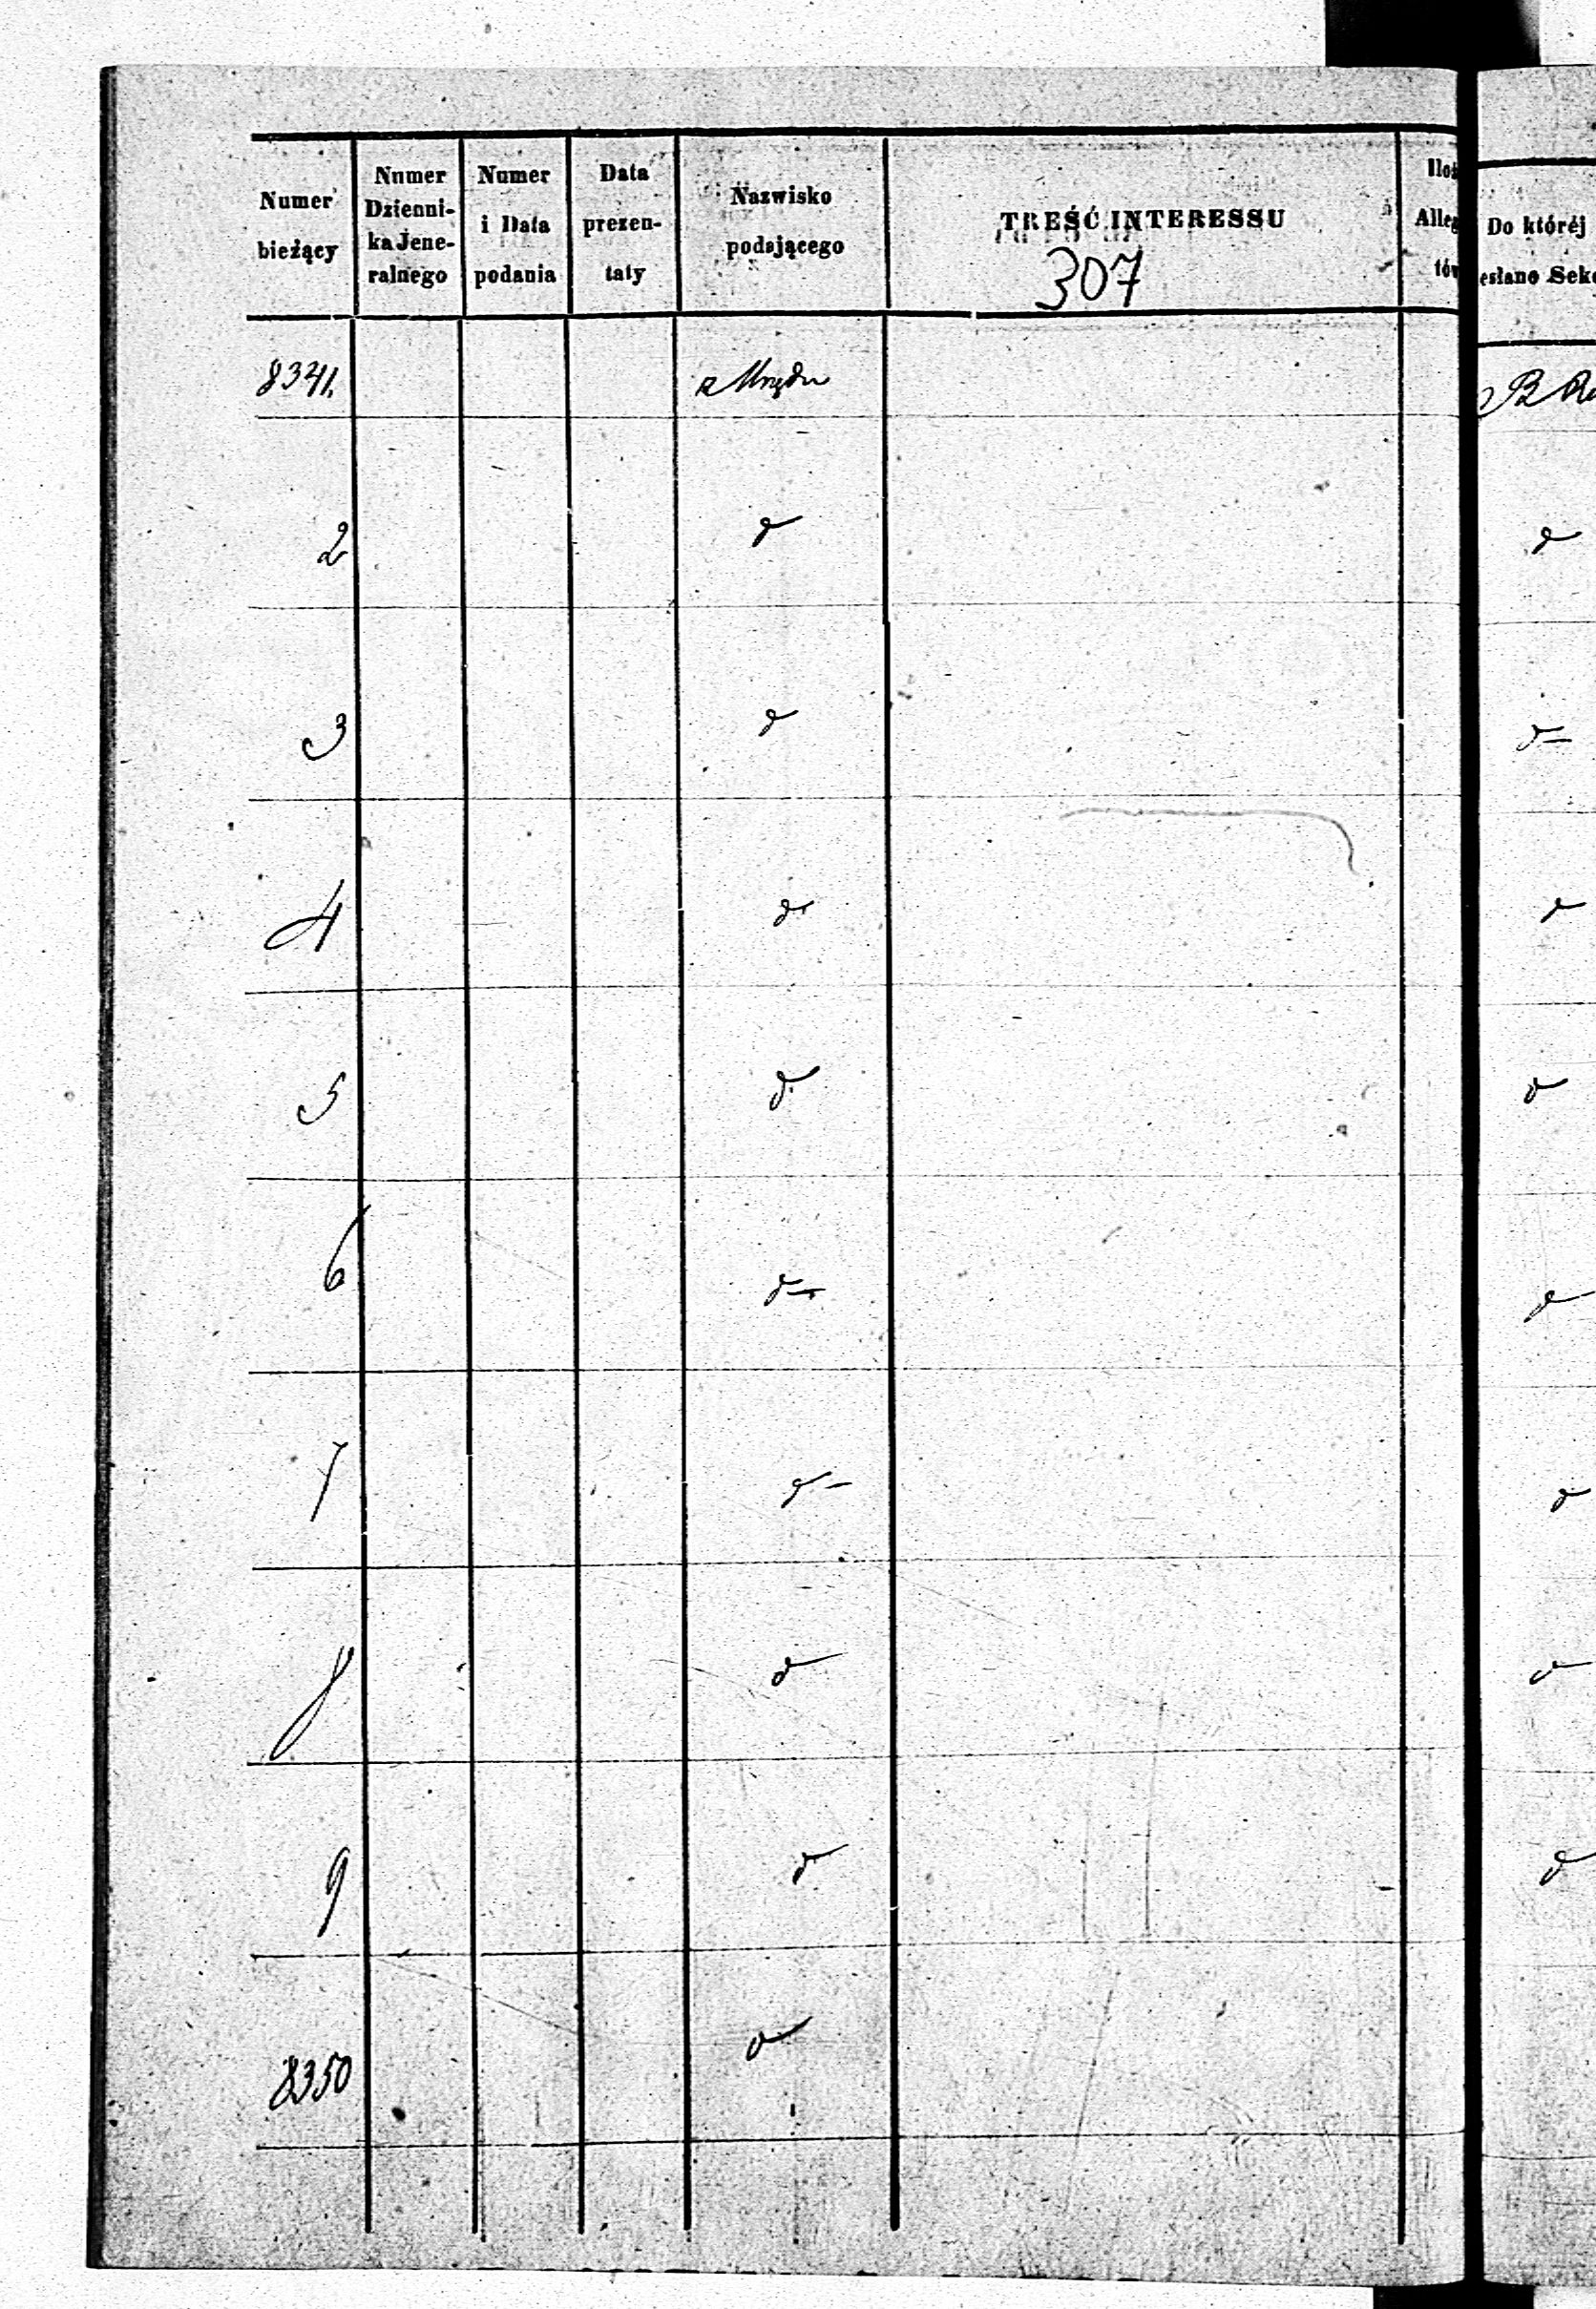 Numer bieżący
Numer Dzienni-kaJene-ralnego
Numer i Data podania
Data prezen-taty
Nazwisko podającego
TREŚĆ INTERESSU
Iloś
Alleg
tów
Do któréj
esłano Sek
307
8341. z Urzędu B
2 d d
3 d d
4 d d
5 d d
6 d d
7 d d
8 d d
9 d d
8350 d